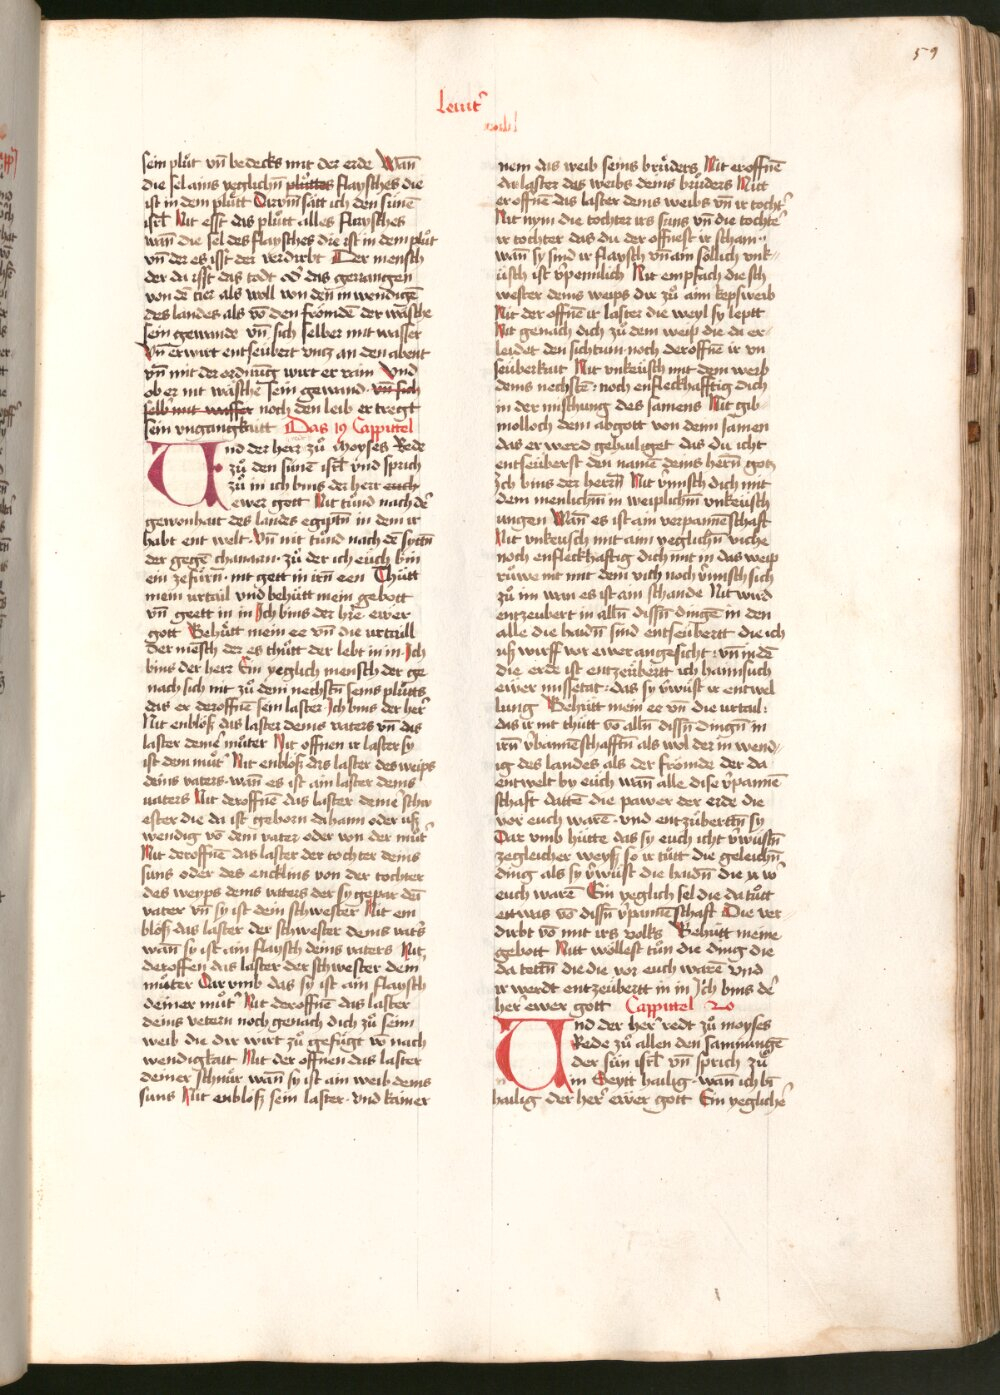 59
Leuit̉
sein plůt vn̄ bedecks mit der erde Wan̄
die sel ains yeglichn̄ pluttes flaysches die
ist in dem plůtt Darvm̄ sätt ich den sūnē
isrl̄ Nit esst das plůtt alles flaysches
wan̄ die sel des flaysches die ist in dem plůt
vn̄ der es isst der verdirbt Der mensch
der da isst das todt od̉ das gevangen
von dē tier als woll von den inwendigē
des landes als vō den frömdē der wäsche
sein gewande vn̄ sich selber mit wasser
vn̄ er wirt entseubert vncz an den abent
vn̄ mit der ordnūg wirt er rain Vnd
ob er nit wäsche sein gewand · vn̄ sich
selb mit wasser noch den leib er tregt
sein vngangkaitt Das 19 Cappittel
Und der herr zů moyses Rede
zů den sūnē isrl̄ vnd sprich
zů in ich bins der herr euch
ewer gott Nit tůnd nach dē
gewonhait des landes egiptn̄ in dem ir
habt ent welt · vn̄ nit tūnd nach dē sÿttn̄
der gegē chanaan · zů der ich eüch bin
ein zefūrn̄ · nit gett in irn̄ een Thůtt
mein vrtail vnd behůtt mein gebott
vn̄ geett in in Ich bins der hr̄e ewer
gott Behůtt mein ee vn̄ die vrtaill
Der mēsch der es thůtt der lebt in in · Ich
bins der herr Ein yeglich mensch der ge
nach sich nit zů dem nechstn̄ seins plůtts
das er deroffnē sein laster Ich bins der her̉
Nit enblöß das laster deins vaters vn̄ das
laster deine můter Nit offnen ir laster sy
ist dein můt̉ Nit enblöß das laster des weips
deins vaters · wan̄ es ist ain laster deins
vaters Nit deroffnē das laster deine̓ schw
ester die da ist geborn dahaim oder uß
wendig vō dem vater oder von der můt̉
Nit deroffnē das laster der tochter deins
suns oder des encklins von der tochter
des weyps deins vaters der sy gepar dē
vater vn̄ sy ist dein schwester Nit em
blöß das laster der schwester deins vat̉s
wan̄ sy ist ain flaysch deins vaters Nit
deroffen das laster der schwester dein
můter Dar vmb das sy ist ain flaysch
deiner můt̉ Nit deroffnē das laster
deins vetern noch genach dich zů seim
weib die dir wirt zů gefügt vō nach
wendigkait Nit der offnen das laster
deiner schnůr wan̄ sy ist ain weib deins
suns Nit enblöß sein laster · vnd kainer
nem das weib seins brůders Nit eroffnē
das laster des weibs deins brůders Nitt
eroffnē das laster deins weibs vn̄ ir tocht̉
Nit nym die tochter irs suns vn̄ die tochte̓
ir tochter das du der offnest ir scham ·
wan̄ sy sind ir flaysch vn̄ ain söllich vnk
üsch ist v̓pennlich Nit empfach die sch
wester deins weips dir zů aim kepsweib
Nit der offnē ir laster die weyl sy leptt
Nit genach dich zů dem weip die da er
leidet den sichtum · noch deroffnē ir vn
seuberkait Nit vnkeüsch mit dem weib
deins nechstē · noch enfleckhafftig dich
in der mischung des samens Nit gib
molloch dem abgott von deim samen
das er werd gehailiget das du icht
entseüberst den namē deins hern̄ gotz
Ich bins der herr̄ Nit vmisch dich mit
dem menlichn̄ in weiplichn̄ vnkeüsch
ungen Wan̄ es ist ain verpannēschaft
Nit vnkeusch mit aim yeglichn̄ viche
noch enfleckhaftig dich mit in das weip
růwe nit mit dem vich noch v̓misch sich
zů im wan es ist ain schande Nit wird
entzeubert in alln̄ disn̄ dingē in den
alle die haidn̄ sind entseübertt die ich
uß wirff vor ewer angesicht · vn̄ in dē
die erde ist entzeübertt ich haimsuch
ewer missetat · das sy v̓wüst ir entwel
lung Behütt mein ee vn̄ die vrtail :
das ir nit thütt vō alln̄ disn̄ dingn̄ in
irn̄ v̓bannēschafftn̄ als wol der in wend
ig des landes als der frömde der da
entwelt by euch wan̄ alle dise v̓pannē
schaft datten̄ die pawer der erde die
vor euch warē · vnd entzübertn̄ sy
Dar vmb hütte das sy euch icht v̓wüstn̄
zegleicher weyß so ir tütt die geleichn̄
ding als sy v̓wüst die haidn̄ die vor
euch warē Ein yeglich sel die da tůtt
etwas vō disn̄ v̓pannēschaft Die ver
dirbt vō mit irs volks Behütt meine
gebott Nitt wöllest tūn die ding die
da tettn̄ die die vor euch warē vnd
ir werdt entzeübertt in in Ich bins de̓
her̉ ewer gott Cappittel 20
Und der her̉ redt zů moyses
Rede zů allen den samnungē
der sün isrl̄ vn̄ sprich zů
in Seytt hailig · wan̄ ich bī
hailig der her̉ ewer gott Ein yegliche̓